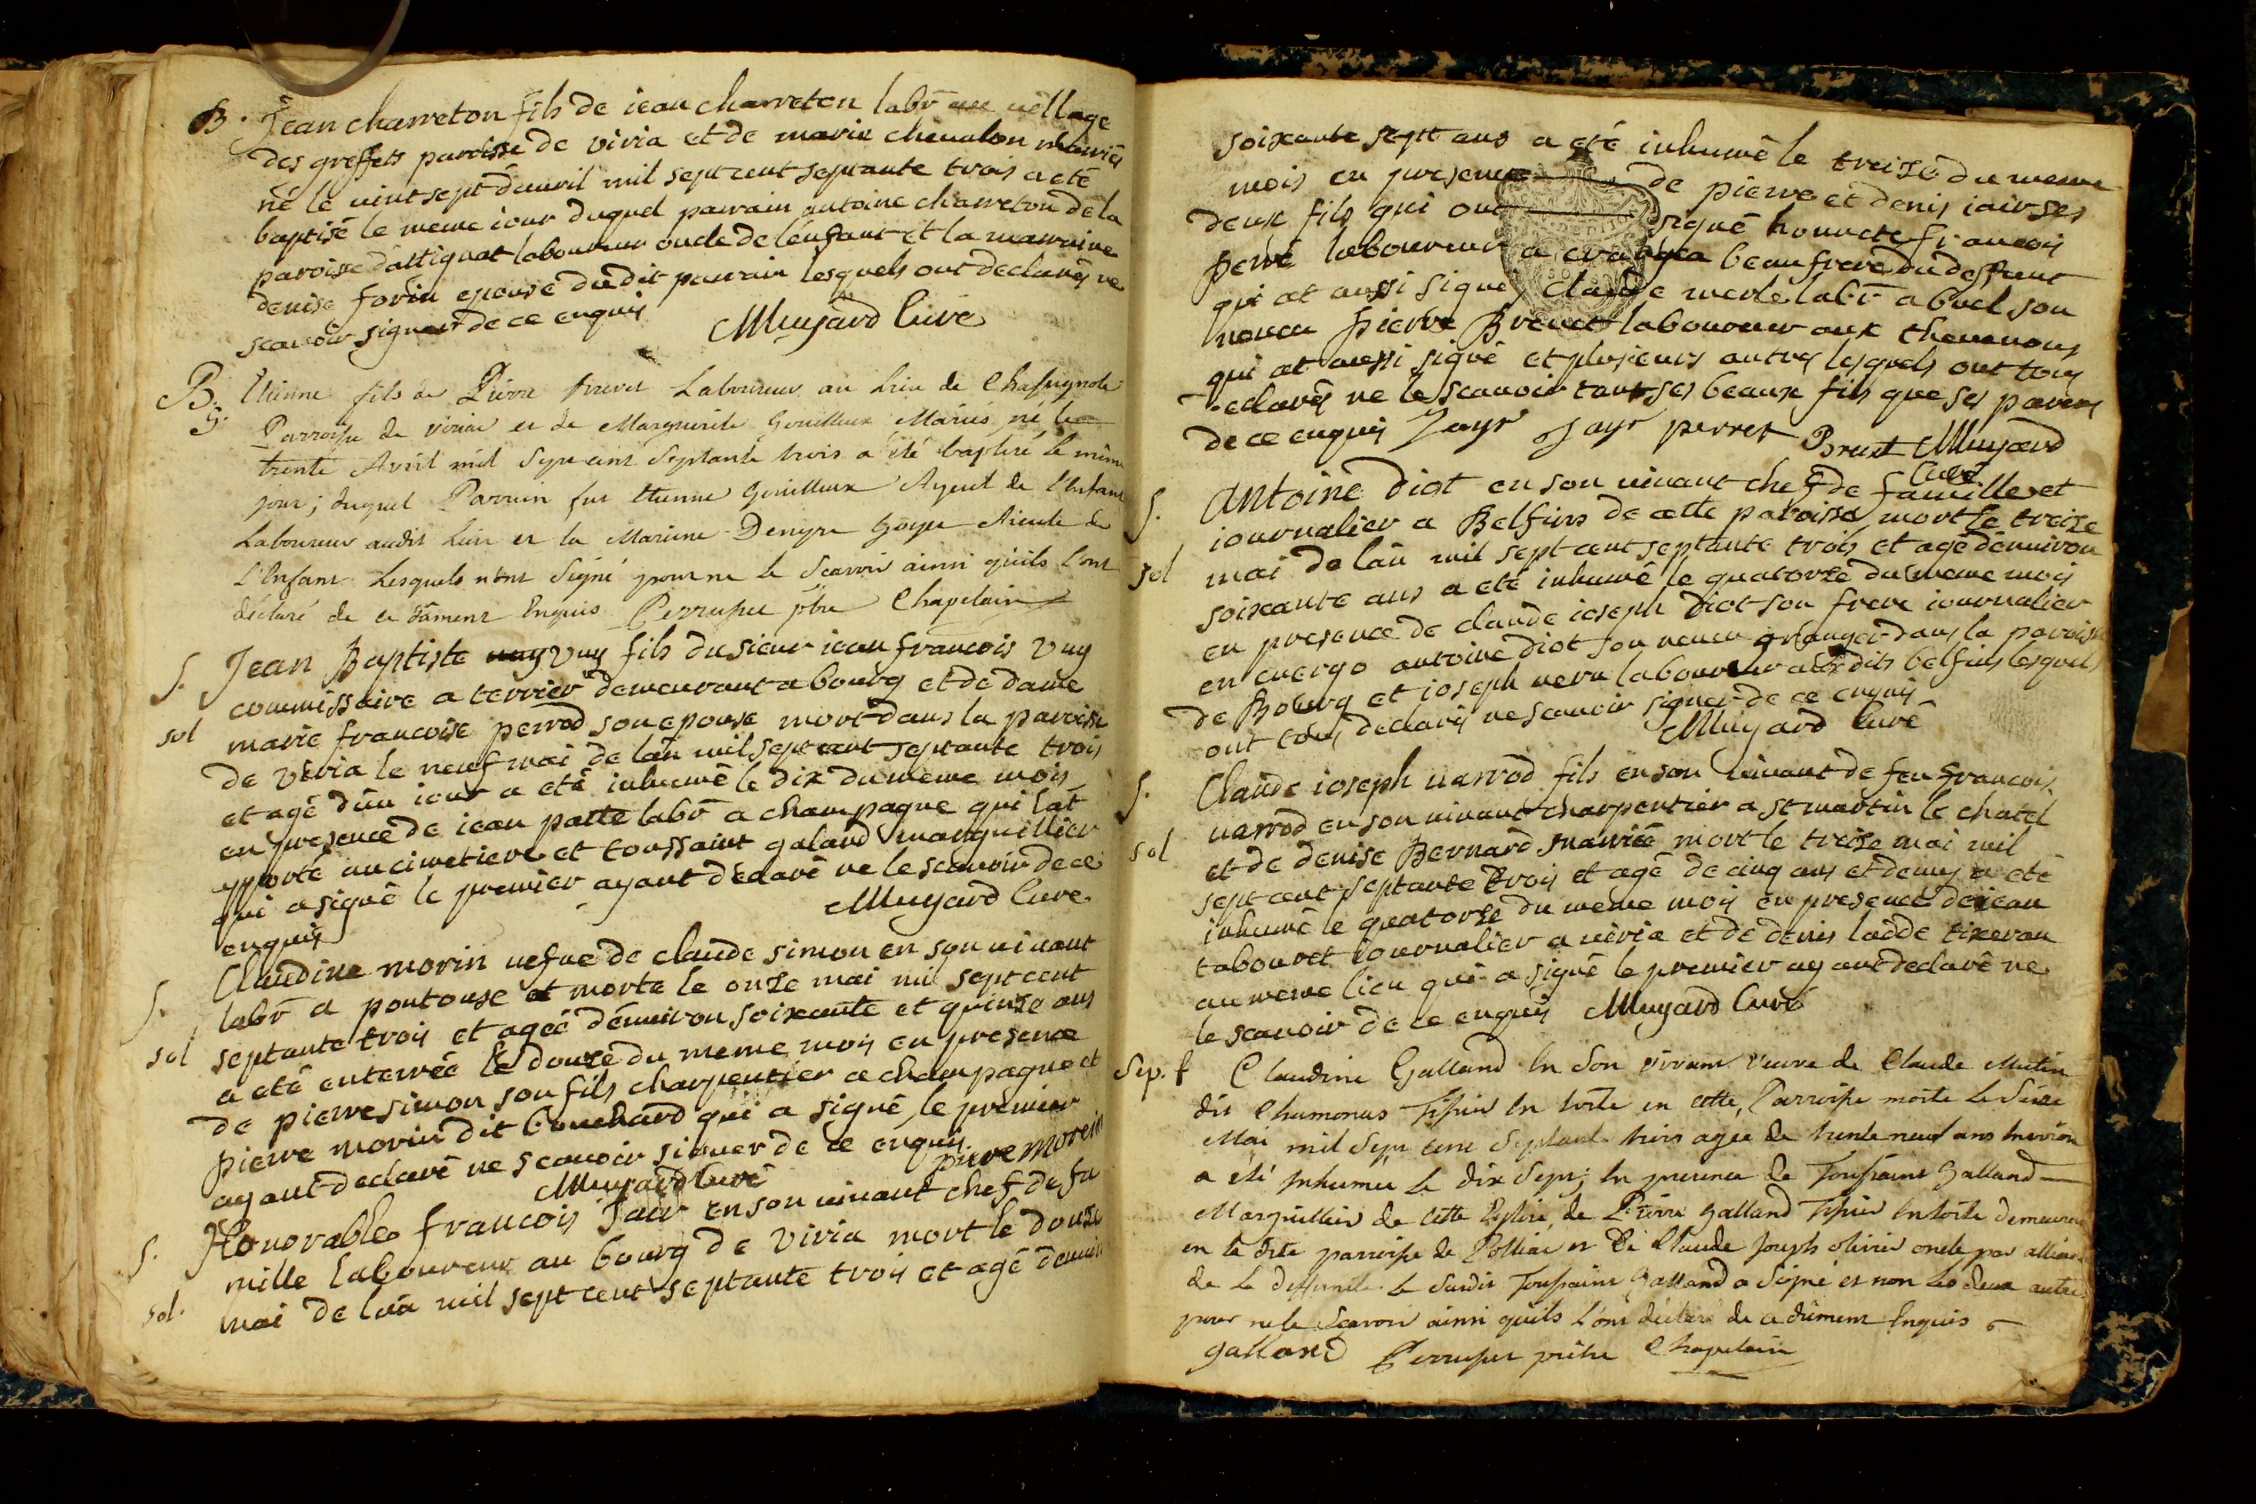 B. Jean charreton fils de iean charreton labr au uillage
des greffets paroisse de viria et de marie cheualon mariés
né le vint sept dauril mil sept cent septante trois a eté
baptisé le meme iour duquel parrain antoine charreton de la
paroisse dattignat laboureur oncle de lenfant et la marraine
denise forin epouse dudit parrain lesquels ont declarés ne
scauoir signer de ce enquis Muyard Curé
B. Etienne fils de Pierre Brevet Laboureur au Lieu de Chassignole
g. Parroisse de viriat et de Marguerite Gouilleux Mariés, né le
trente Avril mil Sept cent Septante trois a été baptisé le même
jour; duquel Parrain fut Etienne Gouilleux Ayeul de l'Enfant
Laboureur audit Lieu et la Maraine Denyse Goyet Aieule de
L'Enfant Lesquels n'ont Signé pour ne le Scavoir ainsi qu'ils l'ont
déclaré de ce dûment Enquis Perruset ptre Chapelain
S. Jean Baptiste vuy fils du sieur iean francois vuy
commissaire a terrier demeurant a bourg et de dame
sol marie francoise perrod son epouse mort dans la paroisse
de viria le neuf mai de lan mil sept cent septante trois
et agé dun iour a eté inhumé le dix du meme mois
en presence de iean patte labr a champagne qui lat
apporté au cimetiere et toussaint galand marguillier
qui a signé le premier ayant declaré ne le scauoir de ce
enquis Muyard Cure
S. Claudine morin uefue de claude simon en son uiuant
labr a pontouse et morte le onze mai mil sept cent
sol septante trois et ageé denuiron soixante et quinze ans
a eté enterreé le douze du meme mois en presence
de pierre simon son fils charpentier a champagne et
pierre morin dit bouchard qui a signé le premier
ayant declaré ne scauoir signer de ce enquis
Muyard Curé pierre Morein
S. Honorable francois Jair en son uiuant chef de fa
mille laboureur au bourg de viria mort le douze
sol. mai de lan mil sept cent septante trois et agé denuiron
soixante sept ans a eté inhumé le treise du meme
mois en presence de pierre et denis iair ses
deux fils qui ont signé honnete francois
perré laboureur a beaufrere du deffunt
qui at aussi signé, claude merle labr a buel son
neueu pierre Breuet laboureur aux theuenons
qui at aussi signé et plusieurs autres lesquels ont tous
declarés ne le scauoir tant ses beaux fils que ses parens
de ce enquis Jayr Jayr perret Brevet Muyard
Curé
S. Antoine Diot en son uiuant chef de famille et
iournalier a Belfins de cette paroisse mort le treise
sol mai de lan mil sept cent septante trois et agé denuiron
soixante ans a eté inhumé le quatorze du meme mois
en presence de claude ioseph diot son frere iournalier
en cuergo antoine diot son neueu granger dans la paroisse
de Bourg et ioseph neru laboureur audits belfins lesquels
ont tous declarés ne scauoir signer de ce enquis
Muyard Curé
S. Claude ioseph uarrod fils en son uiuant de feu francois
uarrod en son uiuant charpentier a st martin le chatel
sol et de denise Bernard mariés mort le treise mai mil
sept cent septante trois et agé de cinq ans et demy a eté
inhumé le quatorze du meme mois en presence de iean
tabouret iournalier a viria et de denis ladde tixeran
au meme lieu qui a signé le premier ayant declaré ne
le scauoir de ce enquis Muyard Curé
Sep. f Claudine Galland En Son vivant veuve de Claude Mutin
dit Chumonus Tissier En toile en cette Parroisse morte Le Seize
Mai mil Sept cent Septante trois agée de trente neuf ans Environ
a été Inhumée Le dix Sept; En presence de Toussaint Galland
Marguillier de Cette Eglise, de Pierre galland Tissier En toile demeurant
en la dite parroisse de Polliat et De Claude Joseph olivier oncle par alliance
de La deffunte Le Susdit Toussaint Galland a Signé et non Les deux autres
pour ne le Scavoir ainsi qu'ils L'ont déclaré de ce dûment Enquis
galland Perruset prêtre Chapelain